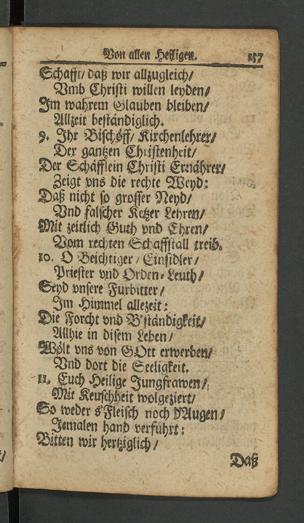 Von allen Heiligen. 157
Schafft/ daß wir allzugleich/
Vmb Christi willen leyden/
Im wahrem Glauben bleiben/
Allzeit beständiglich.
9. Ihr Bischöff/ Kirchenlehrer/
Der gantzen Christenheit/
Der Schäfflein Christi Ernährer/
Zeigt vns die rechte Weyd:
Daß nicht so grosser Neyd/
Vnd falscher Ketzer Lehren/
Mit zeitlich Guth vnd Ehren/
Vom rechten Schaffstall treib.
10. O Beichtiger/ Einsidler/
Priester vnd Orden-Leuth/
Seyd vnsere Fürbitter/
Im Himmel allezeit:
Die Forcht vnd B'ständigkeit/
Allhie in disem Leben/
Wölt vns von GOtt erwerben/
Vnd dort die Seeligkeit.
11. Euch Heilige Jungfrawen/
Mit Keuschheit wolgeziert/
So weder s'Fleisch noch d'Augen/
Jemalen hand verführt:
Bitten wir hertziglich/
Daß